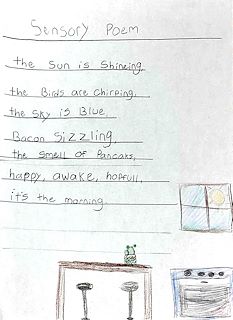 Sensory Poem
the Sun is Shineing,
the Birds are chirping,
the Sky is Blue,
Bacon Sizzling,
the Smell of Pancaks,
happy, awake, hopfull,
it's the morning